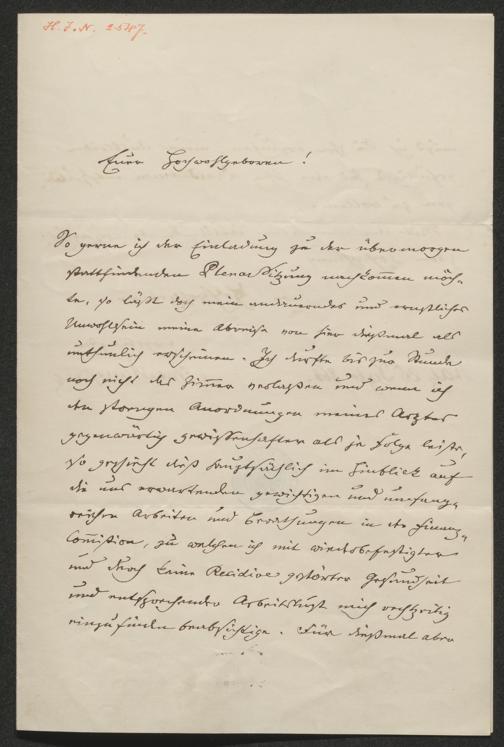 H. I. N. 2587.
Euer Hochwohlgeboren!
So gerne ich der Einladung zu der übermorgen
stattfindenden Plenar Sitzung nachkommen möch-
te, so läßt doch mein andauerndes und ernstliches
Unwohlsein meine Abreise von hier dießmal als
unthunlich erscheinen. Ich durfte bis zur Stunde
noch nicht das Zimmer verlaßen und wenn ich
den strengen Anordnungen meines Arztes
gegenwärtig gewissenhafter als je Folge leiste,
so geschieht dieß hauptsächlich im Hinblick auf
die uns erwartenden gewichtigen und umfang-
reichen Arbeiten und Berathungen in der Finanz-
Commißion, zu welchen ich mit wiederbefestigter
und durch keine Recidive gestörter Gesundheit
und entsprechender Arbeitslust mich rechtzeitig
einzufinden beabsichtige. Für dießmal aber